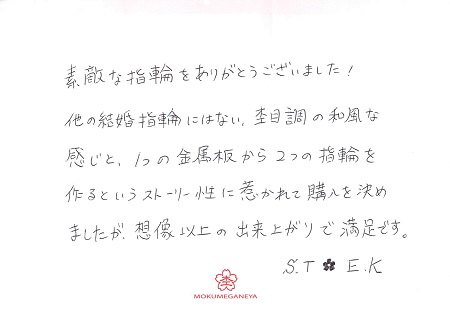 素敵な指輪をありがとうございました!
他の結婚指輪にはない、杢目調の和風な
感じと、1つの金属板から2つの指輪を
作るというストーリー性に惹かれて購入を決め
ましたが、想像以上の出来上がりで満足です。
S.T ✿ E.K
MOKUMEGANEYA